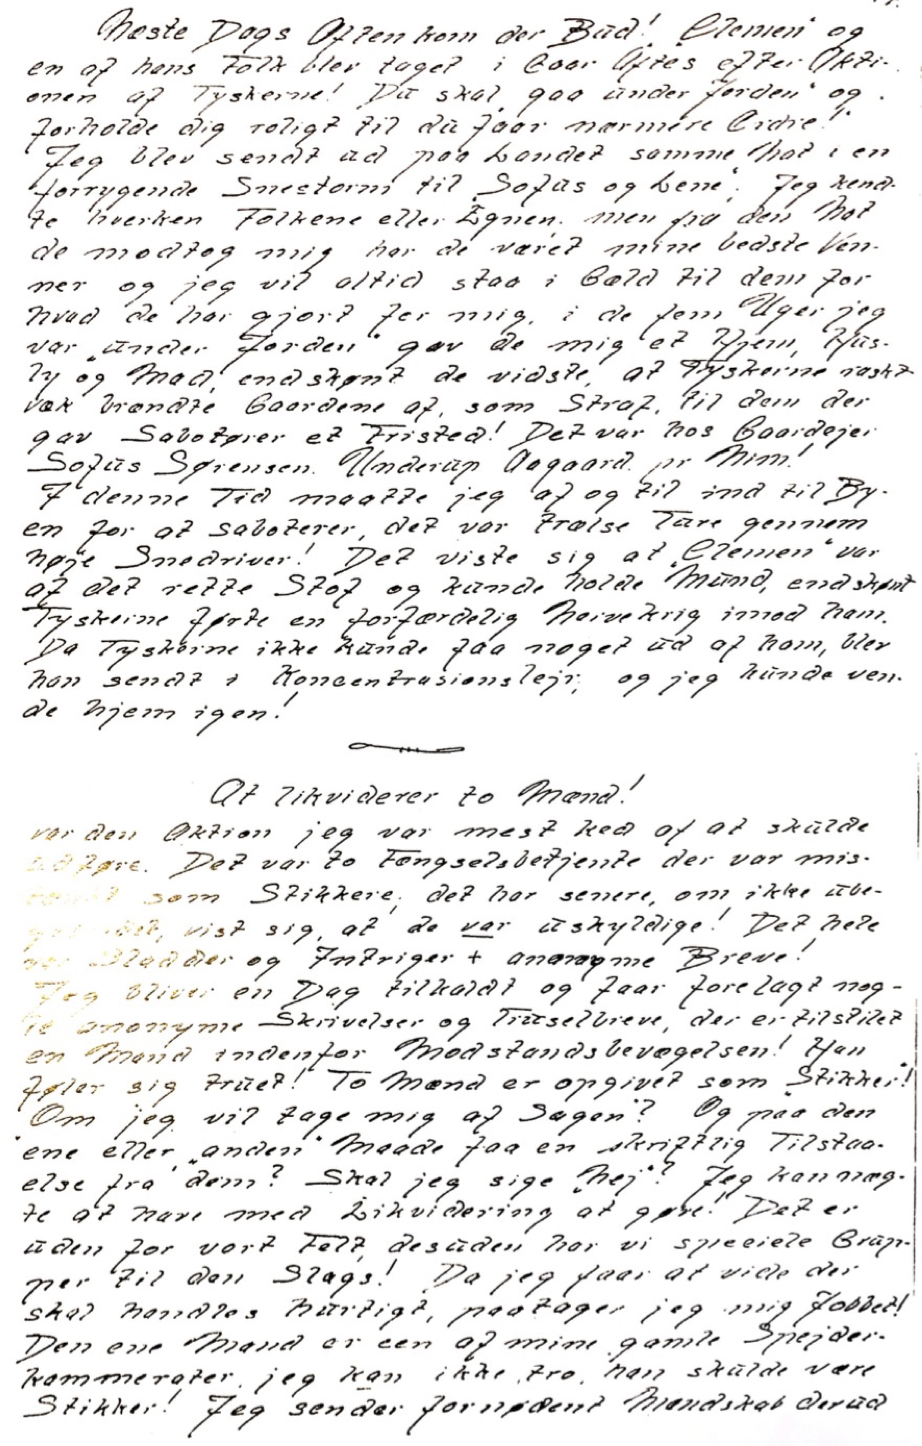 Næste Dags Aften kom der Bud! "Clemen" og
en af hans Folk blev taget i Gaar Aftes efter Akti-
onen af Tyskerne! Du skal gaa under Jorden" og
forholde dig roligt til du faar nærmere Ordre!"
Jeg blev sendt ud paa Landet samme Nat i en
forrygende Snestorm til "Sofus og Lene". Jeg kend-
te hverken Folkene eller Egnen, men fra den Nat
de modtog mig har de været mine bedste Ven-
ner og jeg vil altid staa i Gæld til dem for
hvad de har gjort for mig, i de fem Uger jeg
var "under Jorden" gav de mig et Hjem, Hus-
ly og Mad, endskønt de vidste, at Tyskerne raskt
væk brændte Gaardene af, som Straf, til dem der
gav Sabotører et Fristed! Det var hos Gaardejer
Sofus Sørensen. Underup Aagaard. pr Nim!
I denne Tid maatte jeg af og til ind til By-
en for at saboterer, det var trælse Ture gennem
høje Snedriver! Det viste sig at "Clemen" var
af det rette Stof og kunde holde Mund, endskønt
Tyskerne førte en forfærdelig Nervekrig imod ham.
Da Tyskerne ikke kunde faa noget ud af ham, blev
han sendt i Koncentrasionslejr, og jeg kunde ven-
de hjem igen!
At likviderer to Mænd!
var den Aktion jeg var mest ked af at skulde
udføre. Det var to Fængselsbetjente der var mis-
tænkt som Stikkere, det har senere, om ikke ube-
vist sig, at de var uskyldige! Det hele
var Sladder og Intriger + anonyme Breve!
Jeg bliver en Dag tilkaldt og faar forelagt nog-
le anonyme Skrivelser og Truselbreve, der er tilstilet
en Mand indenfor Modstandsbevægelsen! Han
føler sig truet! To Mænd er opgivet som "Stikker"!
Om jeg vil tage mig af Sagen"? Og paa den
"ene eller "anden" Maade faa en skriftlig Tilstaa-
else fra dem? Skal jeg sige "nej"? Jeg kan næg-
te at have med Likvidering at gøre! Det er
uden for vort Felt, desuden har vi speciele Grup-
per til den Slags! Da jeg faar at vide der
skal handles hurtigt, paatager jeg mig Jobbet!
Den ene Mand er een af mine gamle Spejder-
kammerater, jeg kan ikke tro, han skulde være
Stikker! Jeg sender fornødent Mandskab derud